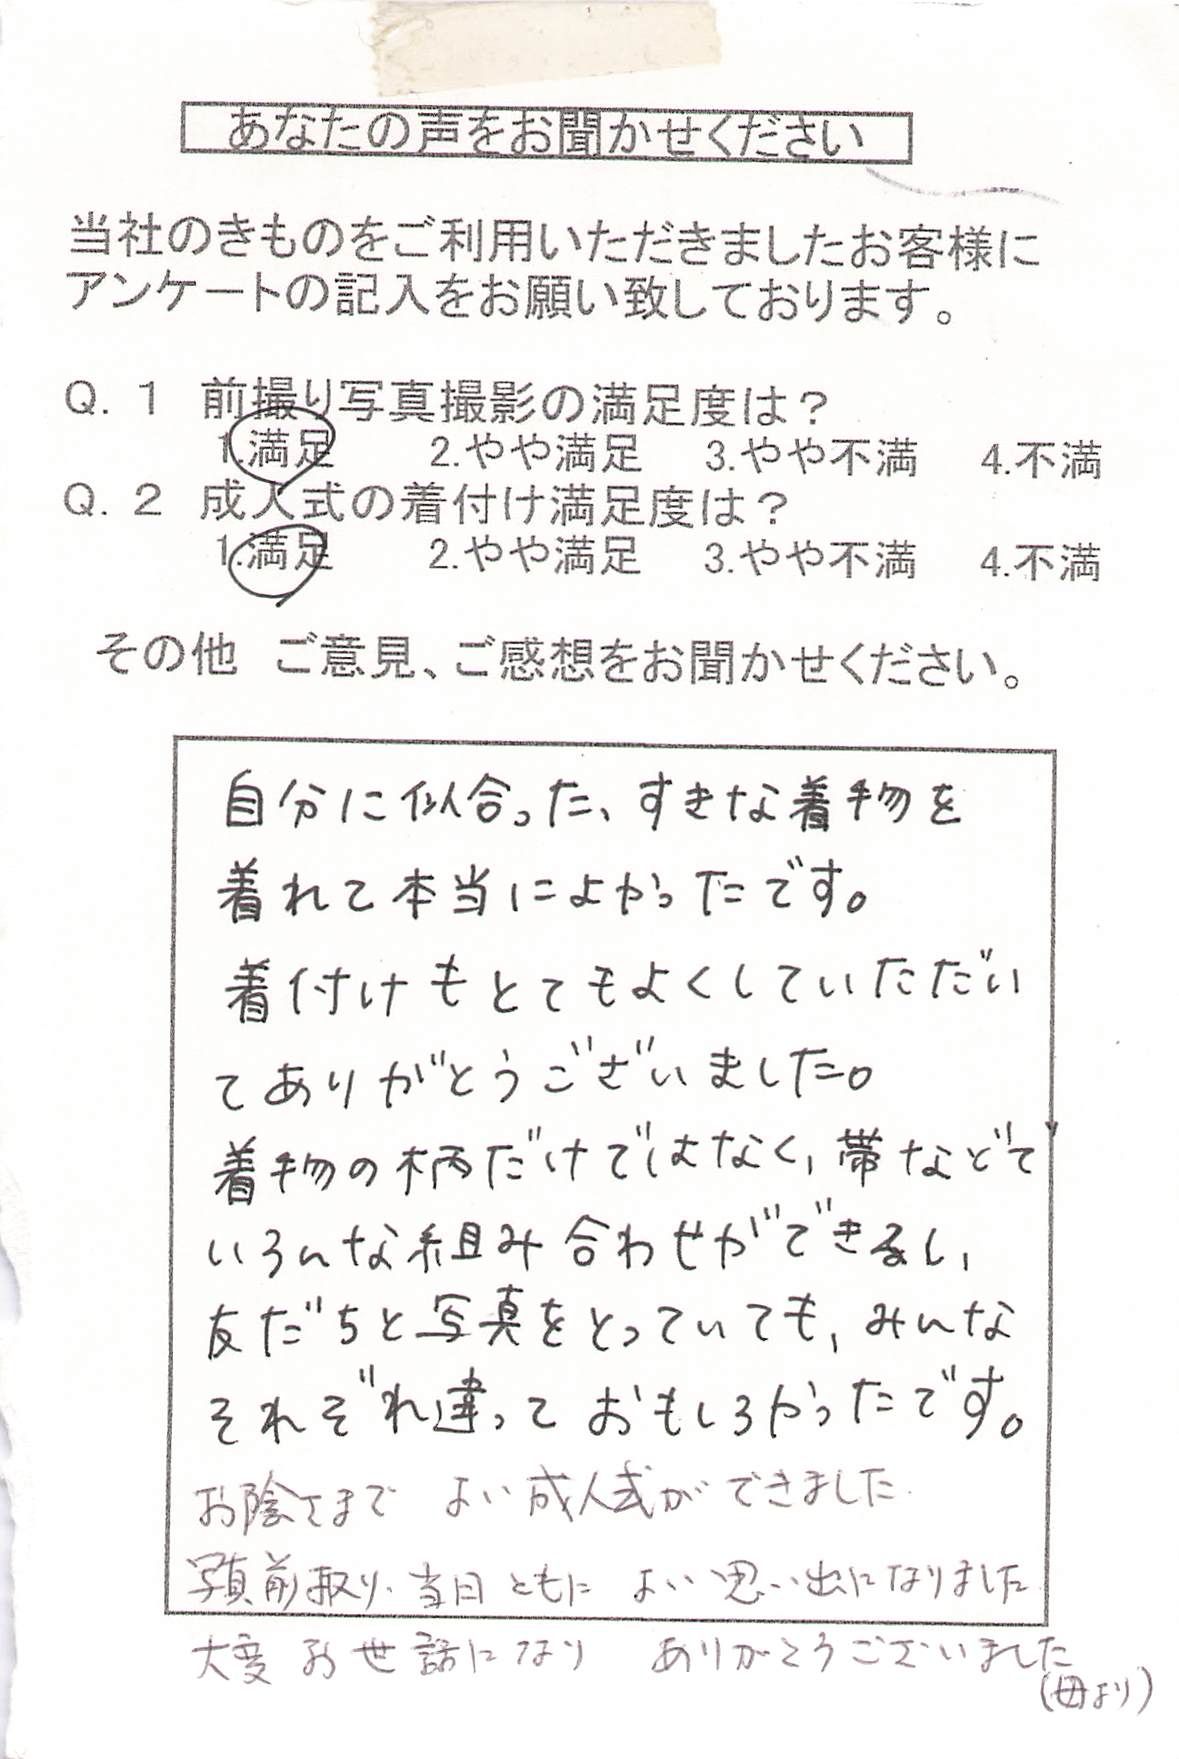 あなたの声をお聞かせください
当社のきものをご利用いただきましたお客様に
アンケートの記入をお願い致しております。
Q.1 前撮り写真撮影の満足度は?
1.満足 2.やや満足 3.やや不満 4.不満
Q.2 成人式の着付け満足度は?
1.満足 2.やや満足 3.やや不満 4.不満
その他 ご意見、ご感想をお聞かせください。
自分に似合った、すきな着物を
着れて本当によかったです。
着付けもとてもよくしていただい
てありがとうございました。
着物の柄だけではなく、帯などで
いろんな組み合わせができるし、
友だちと写真をとっていても、みんな
それぞれ違っておもしろかったです。
お陰さまで よい成人式ができました
写真前取り、当日ともに よい思い出になりました
大変お世話になり ありがとうございました
(母より)